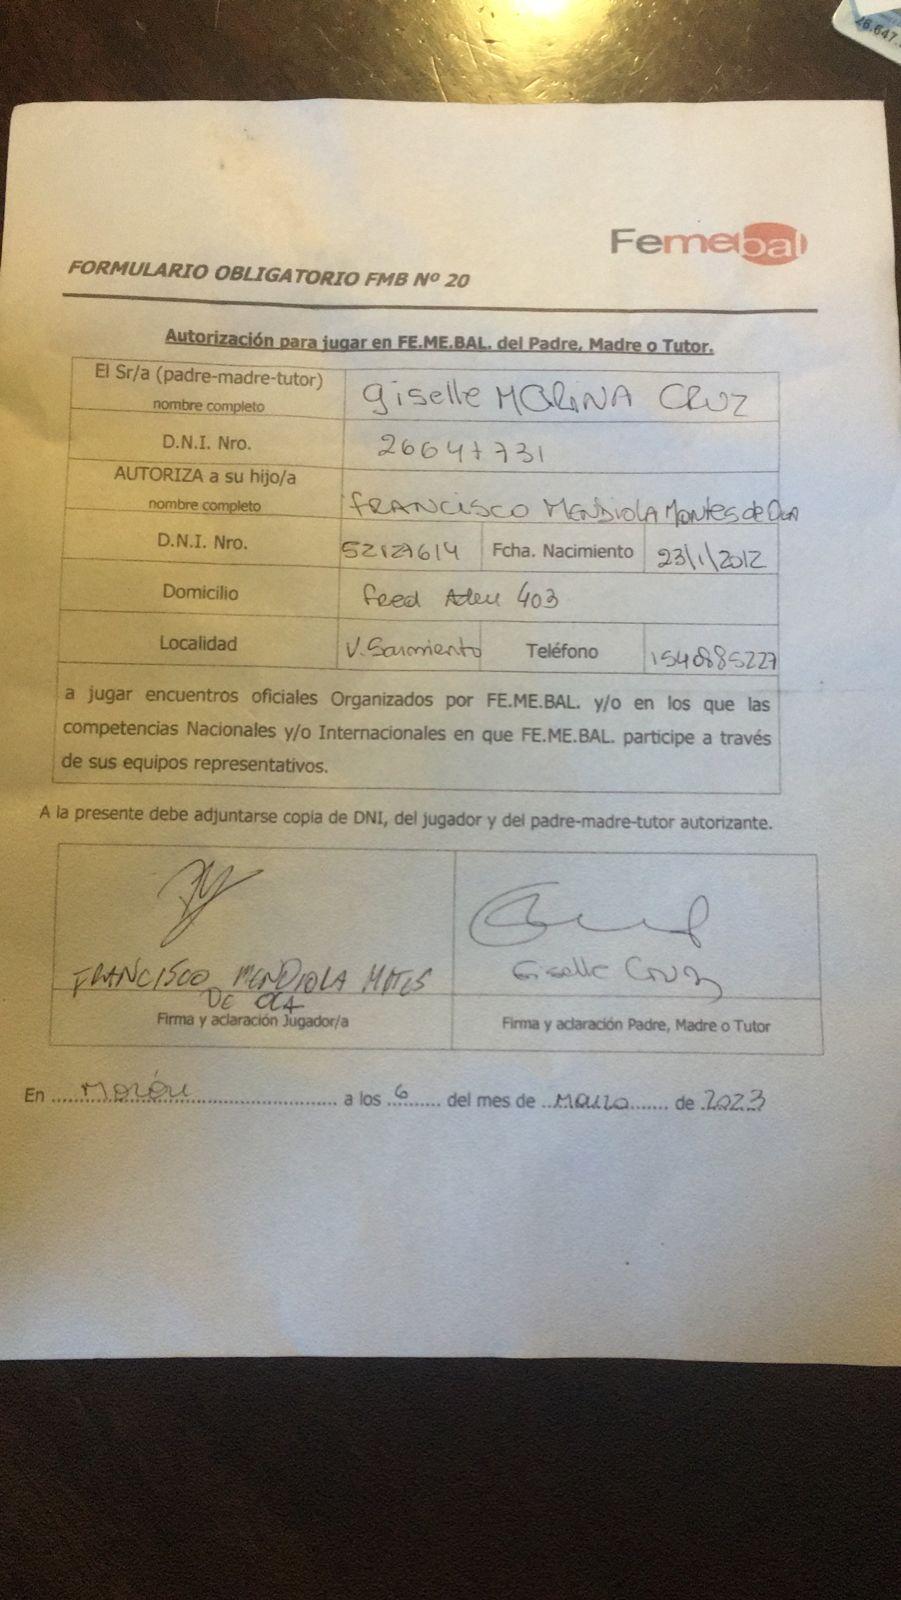 26.647.
Femebal
FORMULARIO OBLIGATORIO FMB Nº 20
Autorización para jugar en FE.ME.BAL. del Padre, Madre o Tutor.
El Sr/a (padre-madre-tutor)
nombre completo
giselle MARINA CRUZ
D.N.I. Nro. 26647731
AUTORIZA a su hijo/a
nombre completo
FRANCISCO MENDIOLA Montes de OCA
D.N.I. Nro. 52127614 Fcha. Nacimiento 23/1/2012
Domicilio 403
Localidad V. Sarmiento Teléfono 1540885227
a jugar encuentros oficiales Organizados por FE.ME.BAL. y/o en los que las
competencias Nacionales y/o Internacionales en que FE.ME.BAL. participe a través
de sus equipos representativos.
A la presente debe adjuntarse copia de DNI, del jugador y del padre-madre-tutor autorizante.
FRANCISCO MENDIOLA
DE OCA
Firma y aclaración Jugador/a
Giselle Cruz
Firma y aclaración Padre, Madre o Tutor
En Morón a los 6 del mes de Marzo de 2023